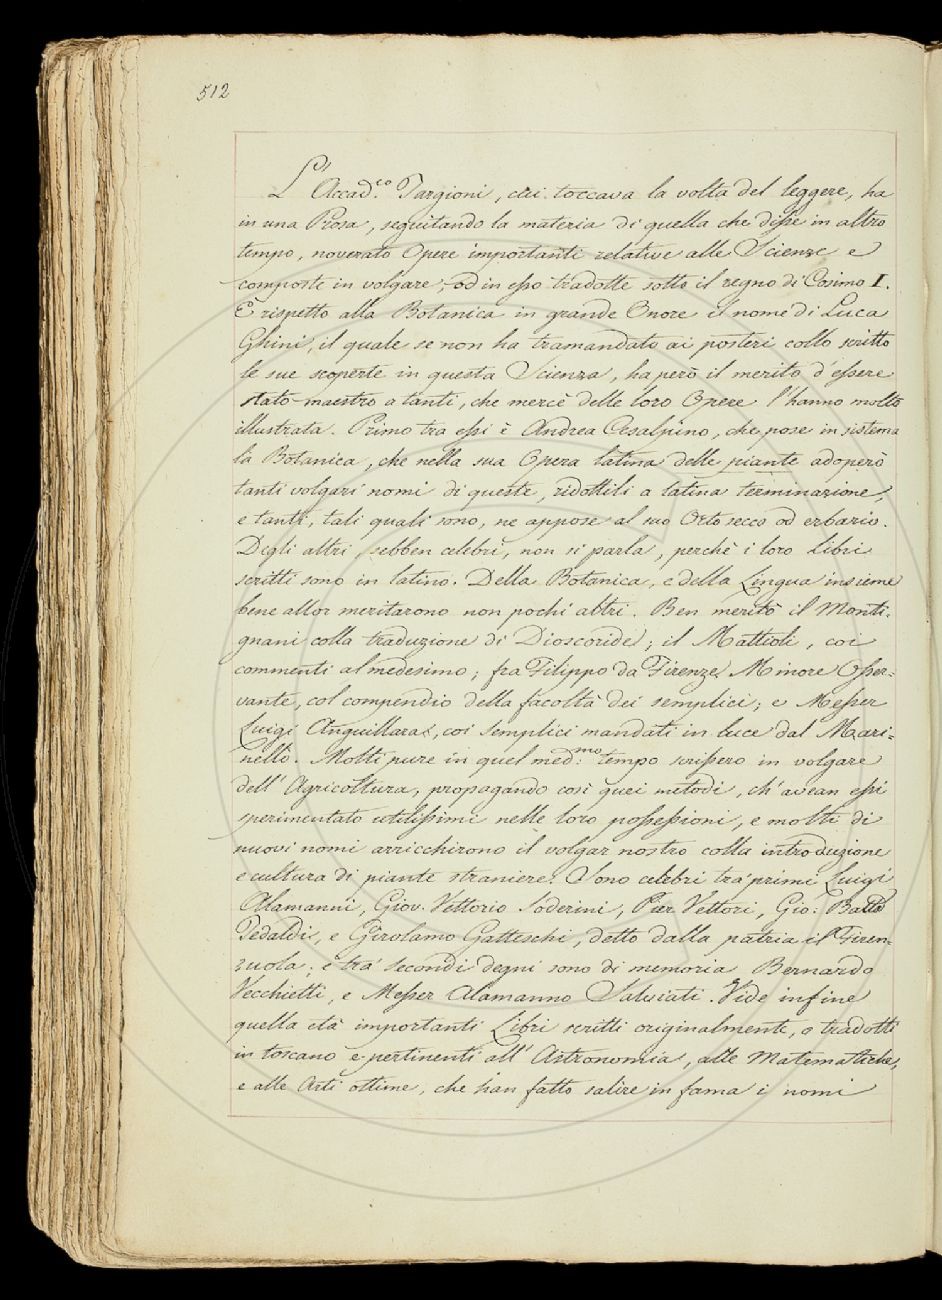 512
L'Accad.co Targioni, cui toccava la volta del leggere, ha
in una Prosa, seguitando la materia di quella che disse in altro
tempo, noverato Opere importanti relative alle Scienze e
composte in volgare, od in esso tradotte sotto il regno di Cosimo I.
E rispetto alla Botanica in grande Onore il nome di Luca
Ghini, il quale se non ha tramandato ai posteri collo scritto
le sue scoperte in questa Scienza, ha però il merito d'essere
stato maestro a tanti, che mercè delle loro Opere l'hanno molto
illustrata. Primo tra essi è Andrea Cesalpino, che pose in sistema
la Botanica, che nella sua Opera latina delle piante adoperò
tanti volgari nomi di queste, ridottili a latina terminazione,
e tanti, tali quali sono, ne appose al suo Orto secco od erbario.
Degli altri, sebben celebri, non si parla, perchè i loro Libri
scritti sono in latino. Della Botanica, e della Lingua insieme
bene allor meritarono non pochi altri. Ben meritò il Monti-
gnani colla traduzione di Dioscoride; il Mattioli, coi
commenti al medesimo; fra Filippo da Firenze Minore Osser-
vante, col compendio della facoltà dei semplici; e Messer
Luigi Anguillara, coi semplici mandati in luce dal Mari=
nello. Molti pure in quel med:mo tempo scrissero in volgare
dell'Agricoltura, propagando così quei metodi, ch'avean essi
sperimentato utilissimi nelle loro possessioni, e molti di
nuovi nomi arricchirono il volgar nostro colla introduzione
e cultura di piante straniere. Sono celebri tra' primi Luigi
Alamanni, Giov. Vettorio Soderini, Pier Vettori, Gio: Batta
Tedaldi, e Girolamo Gatteschi, detto dalla patria il Firen-
zuola; e tra' secondi degni sono di memoria Bernardo
Vecchietti, e Messer Alamanno Salviati. Vide infine
quella età importanti Libri scritti originalmente, o tradotti
in toscano e pertinenti all'Astronomia, alle Matematiche,
e alle Arti ottime, che han fatto salire in fama i nomi